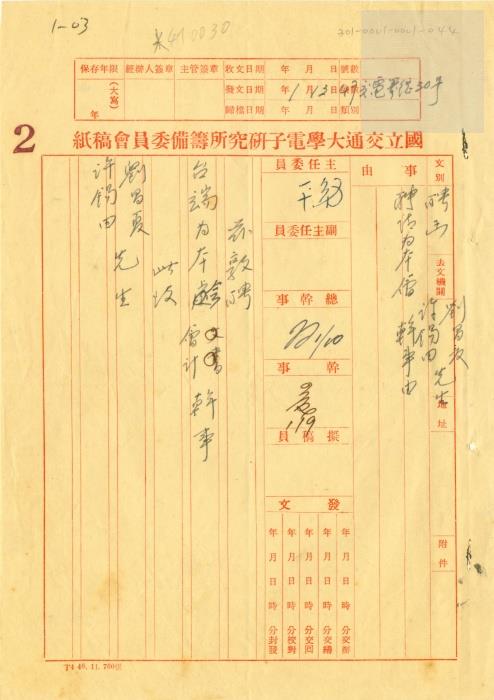 1-03
301-0001-0001-044
保存年限 經辦人簽章 主管簽章 收文日期 年 月 日 號數
(大寫) 發文日期 年 1 月 13 日
年 歸檔日期 年 月 日 類別
2
國立交通大學電子研究所籌備委員會稿紙
文別 聘函 去文機關 劉昌夏 許錫田 先生 地址 附件
事由 聘請為本會幹事由
主任委員
副主任委員
總幹事
1/10
幹事
1/9
撰擬員
發文
年 月 日 時 分交辦
年 月 日 時 分交繕
年 月 日 時 分交回
年 月 日 時 分校對
年 月 日 時 分封發
茲敦聘
台端為本會 文書 會計 幹事
此致
劉昌夏
許錫田 先生